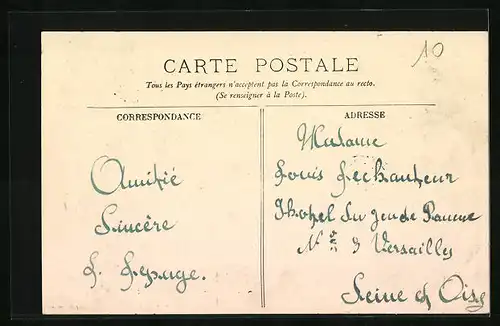 10
CARTE POSTALE
Tous les Pays étrangers n'acceptent pas la Correspondance au recto.
(Se renseigner à la Poste).
CORRESPONDANCE
ADRESSE
Amitié
Sincère
L. Lepage.
Madame
Louis Lechanteur
Thotel du jeu de Paume
N° 3 Versailles
Seine et Oise